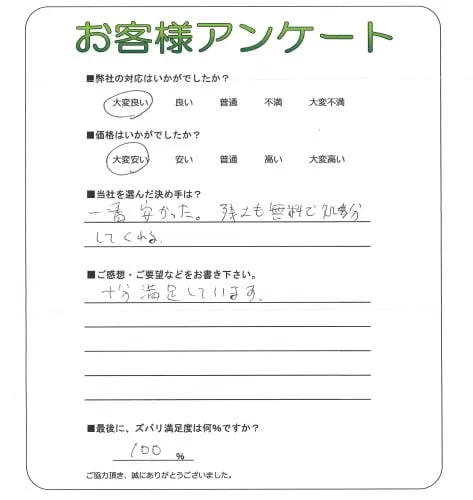 お客様アンケート
■弊社の対応はいかがでしたか?
大変良い 良い 普通 不満 大変不満
■価格はいかがでしたか?
大変安い 安い 普通 高い 大変高い
■当社を選んだ決め手は?
一番安かった。残土も無料で処分
してくれる.
■ご感想・ご要望などをお書き下さい。
十分満足しています.
■最後に、ズバリ満足度は何%ですか?
100 %
ご協力頂き、誠にありがとうございました。